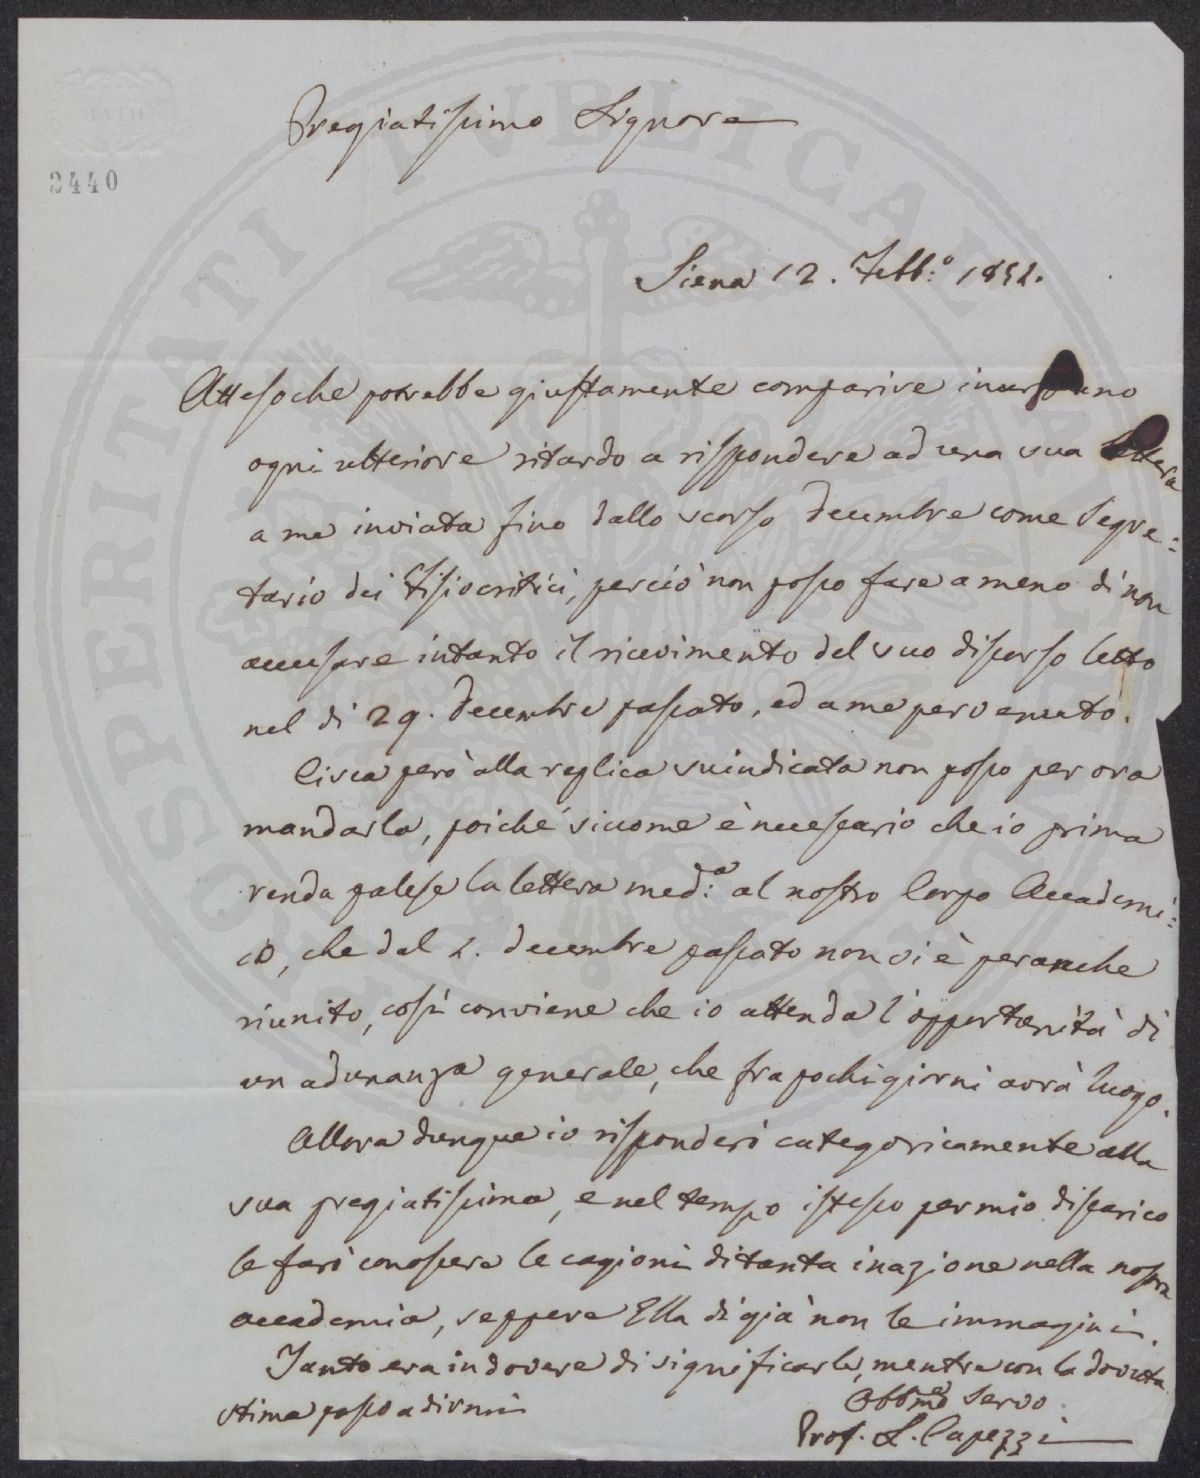 BATH
2440
Pregiatissimo Signore
Siena 12. Febb:º 1852.
Attesoche potrebbe giustamente comparire
ogni ulteriore ritardo a rispondere ad una sua Lettera
a me inviata fino dallo scorso decembre come Segre=
tario dei Fisiocritici, perciò non posso fare a meno di non
accusare intanto il ricevimento del suo discorso letto
nel dì 29. decembre passato, ed a me pervenuto.
Circa però alla replica suindicata non posso per ora
mandarla, poiché siccome è necessario che io prima
renda palese la lettera med:ª al nostro Corpo Accademi=
co, che dal 2. decembre passato non si è peranche
riunito, così conviene che io attenda l'opportunità di
un adunanza generale, che fra pochi giorni avrà luogo.
Allora dunque io risponderò categoricamente alla
sua pregiatissima, e nel tempo istesso per mio discarico
le farò conoscere le cagioni di tanta inazione nella nostra
accademia, seppure Ella di già non le immagini.
Tanto era in dovere di significarle, mentre con la dovuta
stima passo a dirmi
Obbmo Servo
Prof. L. Capezzi
PROSPERITATI PUBLICAE